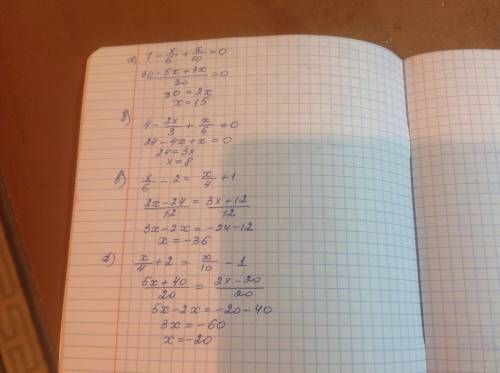 а) 1 - x/6 + x/10 = 0
30 - 5x + 3x / 30 = 0
30 = 2x
x = 15
б) 4 - 2x/3 + x/6 = 0
24 - 4x + x = 0
24 = 3x
x = 8
в) x/6 - 2 = x/4 + 1
2x - 24 / 12 = 3x + 12 / 12
3x - 2x = -24 - 12
x = -36
г) x/4 + 2 = x/10 - 1
5x + 40 / 20 = 2x - 20 / 20
5x - 2x = -20 - 40
3x = -60
x = -20